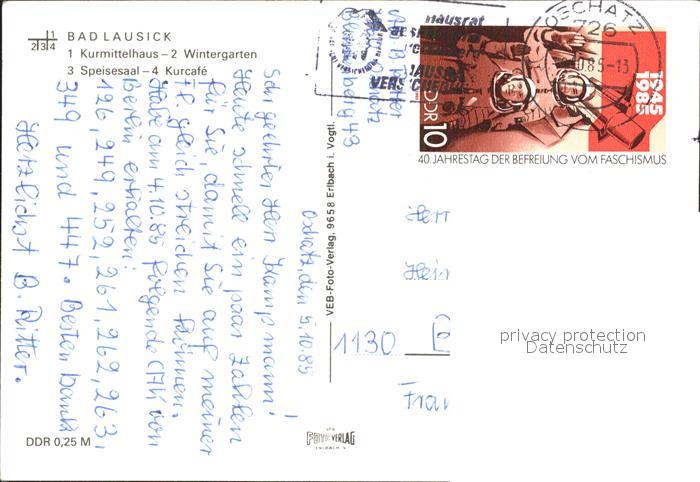 BAD LAUSICK
1 Kurmittelhaus – 2 Wintergarten
3 Speisesaal – 4 Kurcafé
1
2 3 4
Oschatz, den 5.10.85
Sehr geehrter Herr Kampmann!
Heute schnell ein paar Zahlen
für Sie, damit Sie auf meiner
gleich streichen können.
Habe am 4.10.85 folgende von
Berlin erhalten:
196, 249, 252, 261, 262, 263,
349 und 447. Besten Dank
Herzlichst B. Ritter.
DDR 0,25 M
VEB-Foto-Verlag, 9658 Erlbach i. Vogtl.
FOTO VERLAG
B. Ritter
7260 Oschatz
43
hausrat
OSCHATZ
726
85-13
DDR 10
1945
1985
40. JAHRESTAG DER BEFREIUNG VOM FASCHISMUS
Herr
1130
privacy protection
Datenschutz